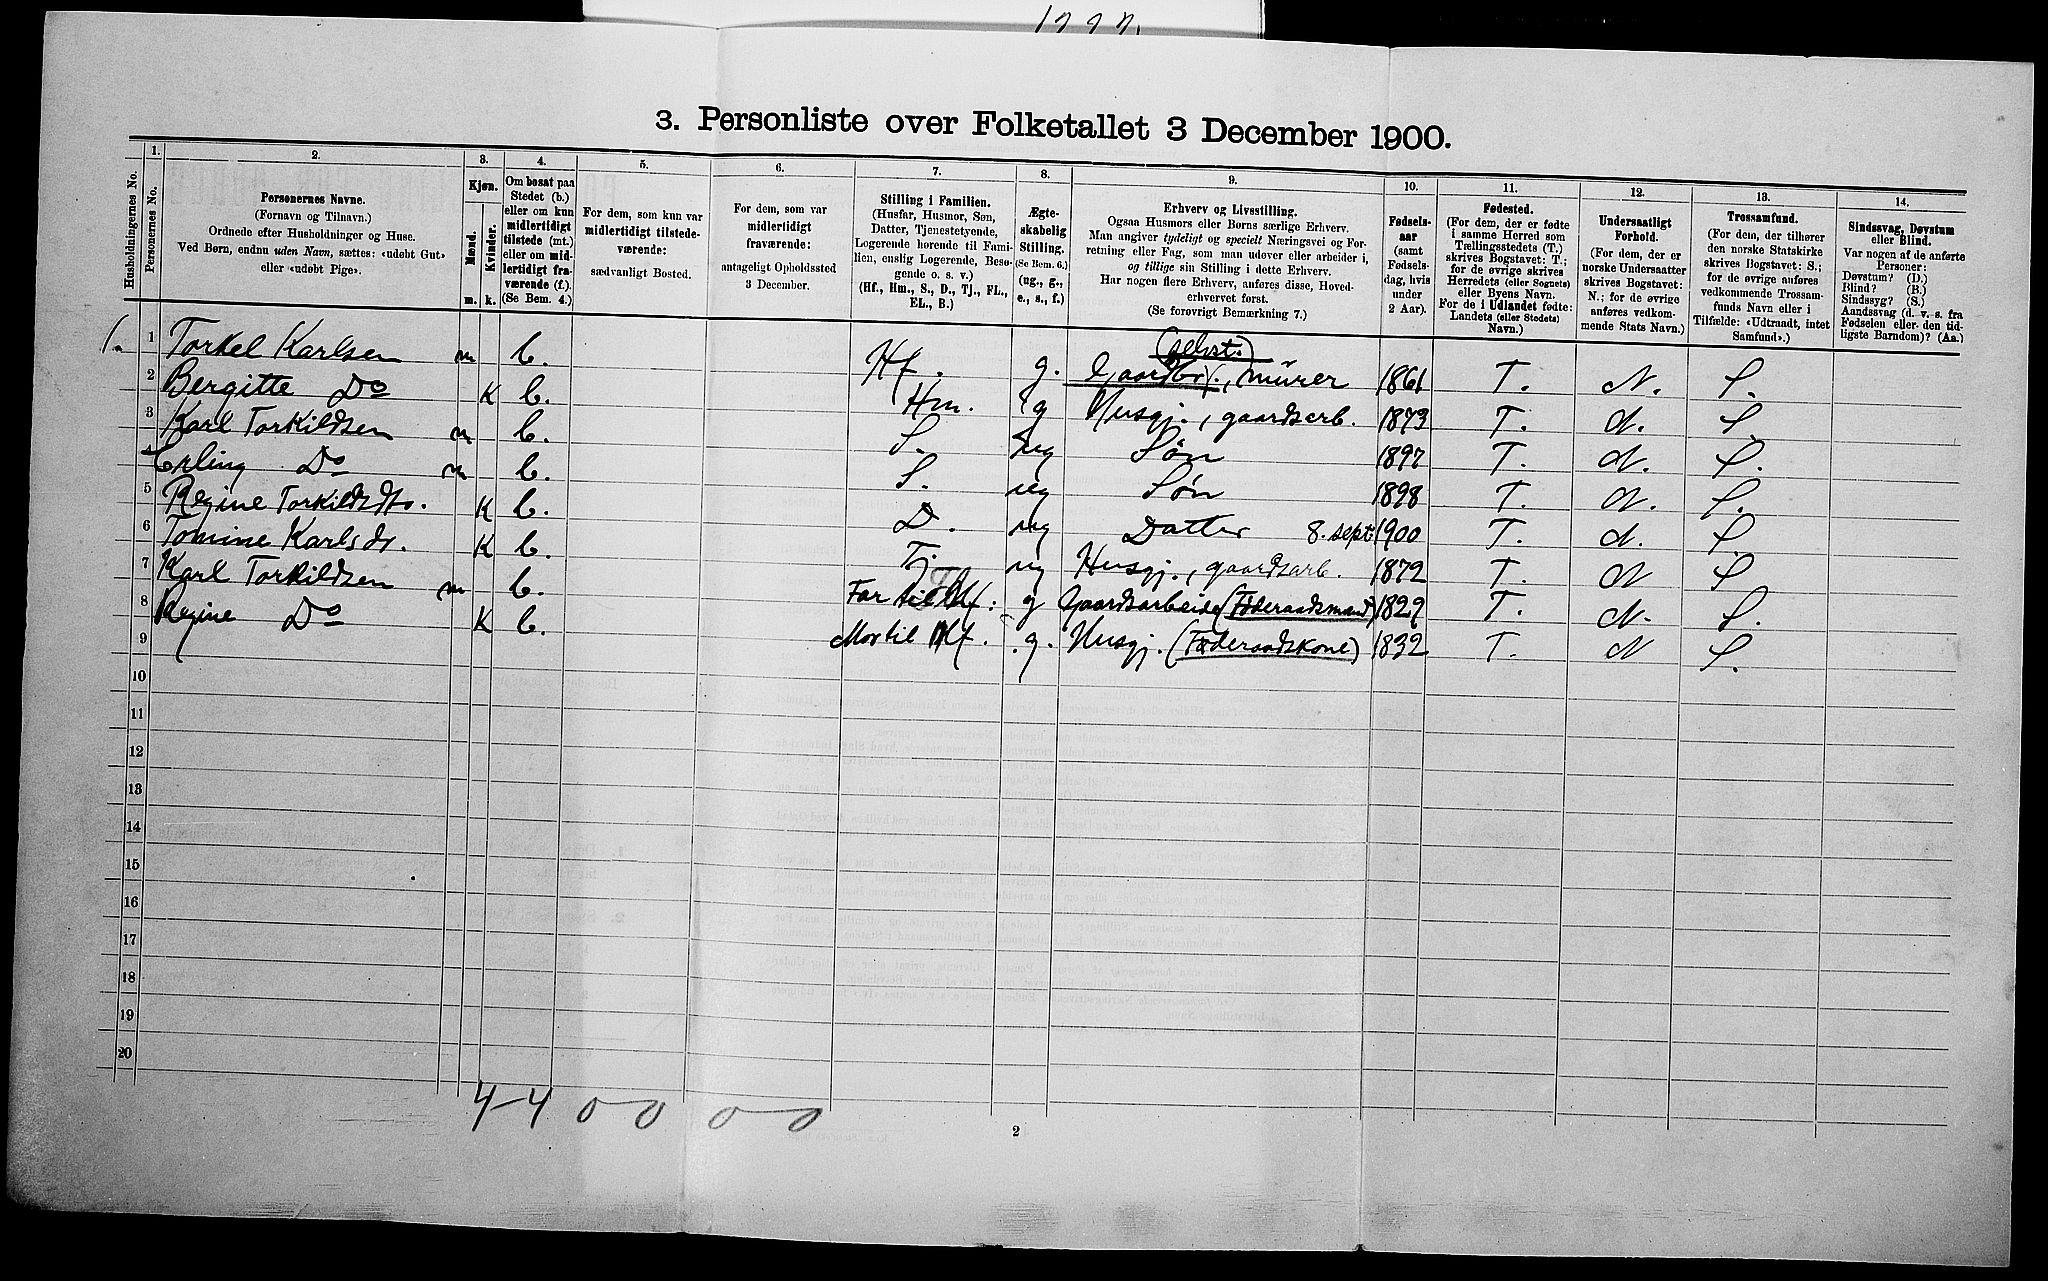 3. Personliste over Folketallet 3 December 1900.
Husholdningernes No.
1.
Personernes No.
2.
Personernes Navne.
(Fornavn og Tilnavn.)
Ordnede efter Husholdninger og Huse.
Ved Børn, endnu uden Navn, sættes: «udøbt Gut»
eller «udøbt Pige».
3.
Kjøn.
Mænd.
Kvinder.
m. k.
4.
Om bosat paa
Stedet (b.)
eller om kun
midlertidigt
tilstede (mt.)
eller om mid-
lertidigt fra-
værende (f.).
(Se Bem. 4.)
5.
For dem, som kun var
midlertidigt tilstede-
værende:
sædvanligt Bosted.
6.
For dem, som var
midlertidigt
fraværende:
antageligt Opholdssted
3 December.
7.
Stilling i Familien.
(Husfar, Husmor, Søn,
Datter, Tjenestetyende,
Logerende hørende til Fami-
lien, enslig Logerende, Besø-
gende o. s. v.)
(Hf., Hm., S., D., Tj., FL.,
EL., B.)
8.
Ægte-
skabelig
Stilling.
(Se Bem. 6.)
(ug., g.,
e., s., f.)
9.
Erhverv og Livsstilling.
Ogsaa Husmors eller Børns særlige Erhverv.
Man angiver tydeligt og specielt Næringsvei og For-
retning eller Fag, som man udøver eller arbeider i,
og tillige sin Stilling i dette Erhverv.
Har nogen flere Erhverv, anføres disse, Hoved-
erhvervet først.
(Se forøvrigt Bemærkning 7.)
10.
Fødsels-
aar
(samt
Fødsels-
dag, hvis
under
2 Aar).
11.
Fødested.
(For dem, der er fødte
i samme Herred som
Tællingsstedets (T.)
skrives Bogstavet: T.;
for de øvrige skrives
Herredets (eller Sognets)
eller Byens Navn.
For de i Udlandet fødte:
Landets (eller Stedets)
Navn.)
12.
Undersaatligt
Forhold.
(For dem, der er
norske Undersaatter
skrives Bogstavet:
N.; for de øvrige
anføres vedkom-
mende Stats Navn.)
13.
Trossamfund.
(For dem, der tilhører
den norske Statskirke
skrives Bogstavet: S.;
for de øvrige anføres
vedkommende Trossam-
funds Navn eller i
Tilfælde: «Udtraadt, intet
Samfund».)
14.
Sindssvag, Døvstum
eller Blind.
Var nogen af de anførte
Personer:
Døvstum? (D.)
Blind? (B.)
Sindssyg? (S.)
Aandssvag (d. v. s. fra
Fødselen eller den tid-
ligste Barndom)? (Aa.)
(selvst.)
1. 1 Torkel Karlsen m b. Hf. g. Gaardbr., murer 1861 T. N. S.
2 Bergitte Do K b. Hm. g Husgj., gaardsarb. 1873 T. N. S.
3 Karl Torkildsen m b. S. ug Søn 1897 T. N. S.
4 Erling Do m b. S. ug Søn 1898 T. N. S.
5 Regine Torkildsdtr. K b. D. ug Datter 8. sept 1900 T. N. S.
6 Tomine Karlsdr. K b. Tj ug Husgj., gaardsarb. 1872 T. N S
7 Karl Torkildsen m b. Far til Hf: g Gaardsarbeide (Føderaadsmand) 1829 T. N. S.
8 Regine Do K b. Mor til Hf. g. Husgj. (Føderaadskone) 1832 T. N S.
9
10
11
12
13
14
15
16
17
18
19
20
4-4 0 0 0 0
2